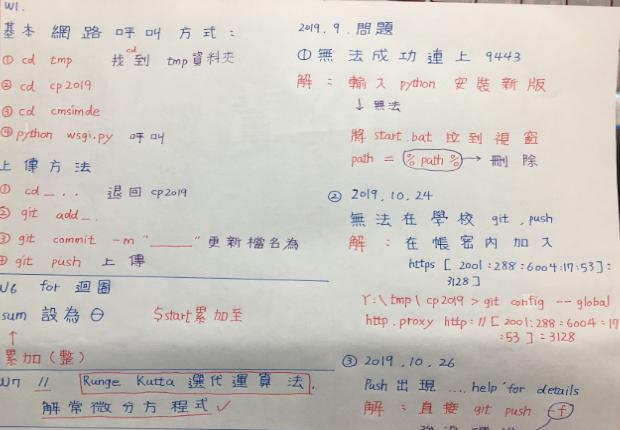 W1.
基本網路呼叫方式：
① cd tmp 找到 tmp資料夾
cd
② cd cp2019
③ cd cmsimde
④ python wsgi.py 呼叫
上傳方法
① cd_.. 退回 cp2019
② git add_.
③ git commit -m "______" 更新檔名為
④ git push 上傳
W6 for 迴圈
sum 設為 0 $start累加至
↑
累加(整)
W7 // Runge Kutta 選代運算法.
解常微分方程式✓
2019.9.問題
① 無法成功連上 9443
解：輸入 python 安裝新版
↓ 無法
將 start.bat 拉到視窗
path = %path% → 刪除
② 2019.10.24
無法在學校 git.push
解：在帳密內加入
https [2001:288:6004:17:53]:
3128]
Y:\tmp\cp2019 > git config --global
http.proxy http://[2001:288:6004:17
:53]:3128
③ 2019.10.26
Push 出現 ....help for details
解：直接 git push -f